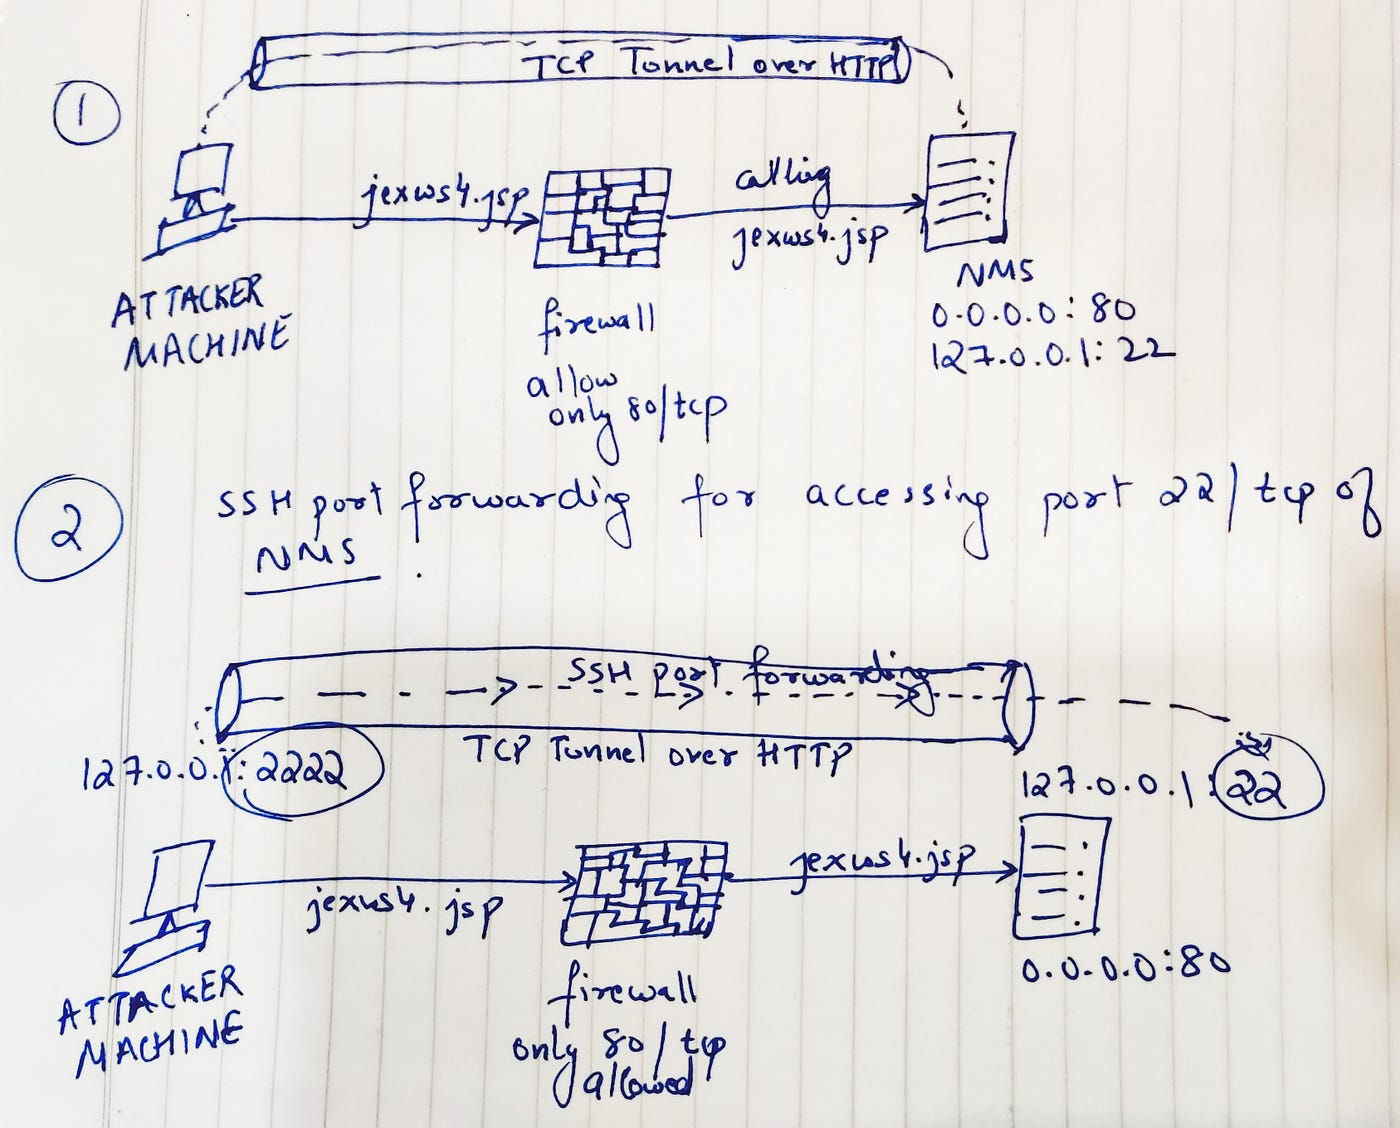 TCP Tunnel over HTTP
1
jexws4.jsp
calling
jexws4.jsp
ATTACKER
MACHINE
firewall
allow
only 80/tcp
NMS
0.0.0.0:80
127.0.0.1:22
2
SSH port forwarding for accessing port 22/tcp of
NMS.
SSH port forwarding
TCP Tunnel over HTTP
127.0.0.1:2222
127.0.0.1:22
jexws4.jsp
jexws4.jsp
ATTACKER
MACHINE
firewall
only 80/tcp
allowed
0.0.0.0:80